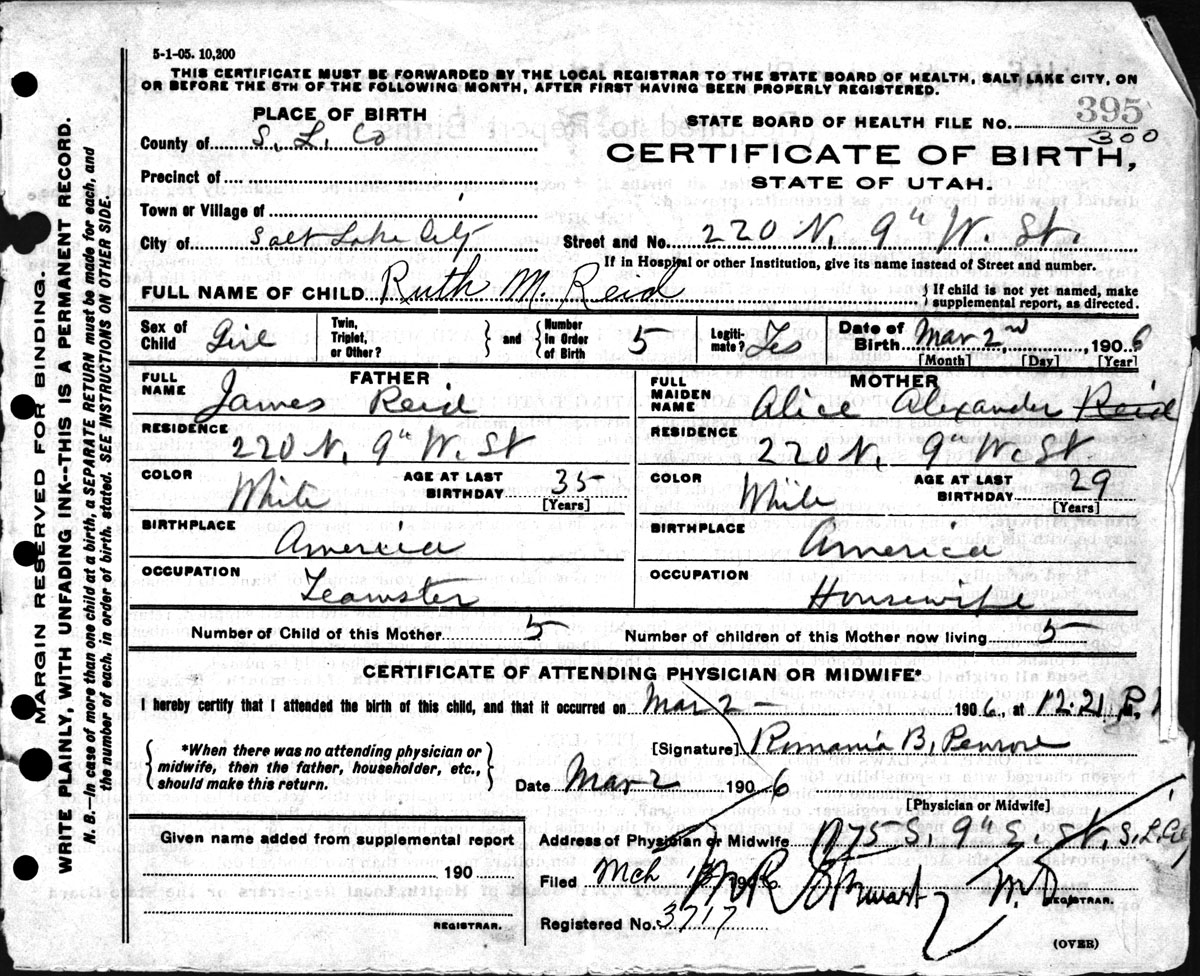 5-1-05. 10,200
THIS CERTIFICATE MUST BE FORWARDED BY THE LOCAL REGISTRAR TO THE STATE BOARD OF HEALTH, SALT LAKE CITY, ON
OR BEFORE THE 5TH OF THE FOLLOWING MONTH, AFTER FIRST HAVING BEEN PROPERLY REGISTERED.
PLACE OF BIRTH
STATE BOARD OF HEALTH FILE NO. 395
300
County of S. L. Co
CERTIFICATE OF BIRTH,
STATE OF UTAH.
Precinct of
Town or Village of
City of Salt Lake City Street and No. 220 N. 9th W. St.
If in Hospital or other Institution, give its name instead of Street and number.
FULL NAME OF CHILD Ruth M. Reid { If child is not yet named, make
supplemental report, as directed.
Sex of Child Girl Twin, Triplet, or Other? } and { Number in Order of Birth 5 Legitimate? Yes Date of Birth Mar 2nd, 1906
[Month] [Day] [Year]
FATHER MOTHER
FULL NAME James Reid FULL MAIDEN NAME Alice Alexander Reid
RESIDENCE 220 N. 9th W. St RESIDENCE 220 N. 9th W. St
COLOR White AGE AT LAST BIRTHDAY 35 [Years] COLOR White AGE AT LAST BIRTHDAY 29 [Years]
BIRTHPLACE America BIRTHPLACE America
OCCUPATION Teamster OCCUPATION Housewife
Number of Child of this Mother 5 Number of children of this Mother now living 5
CERTIFICATE OF ATTENDING PHYSICIAN OR MIDWIFE*
I hereby certify that I attended the birth of this child, and that it occurred on Mar 2 - 1906, at 12.21 P.
{ *When there was no attending physician or
midwife, then the father, householder, etc.,
should make this return. }
[Signature] Romania B. Penrose
Date Mar 2 1906
[Physician or Midwife]
Given name added from supplemental report
190
REGISTRAR.
Address of Physician or Midwife 1175 S. 9th E. St. S. L. City
Filed Mch 1906 Stewart M.D.
REGISTRAR.
Registered No. 3717
(OVER)
MARGIN RESERVED FOR BINDING.
WRITE PLAINLY, WITH UNFADING INK--THIS IS A PERMANENT RECORD.
N. B.--In case of more than one child at a birth, a SEPARATE RETURN must be made for each, and
the number of each, in order of birth, stated. SEE INSTRUCTIONS ON OTHER SIDE.